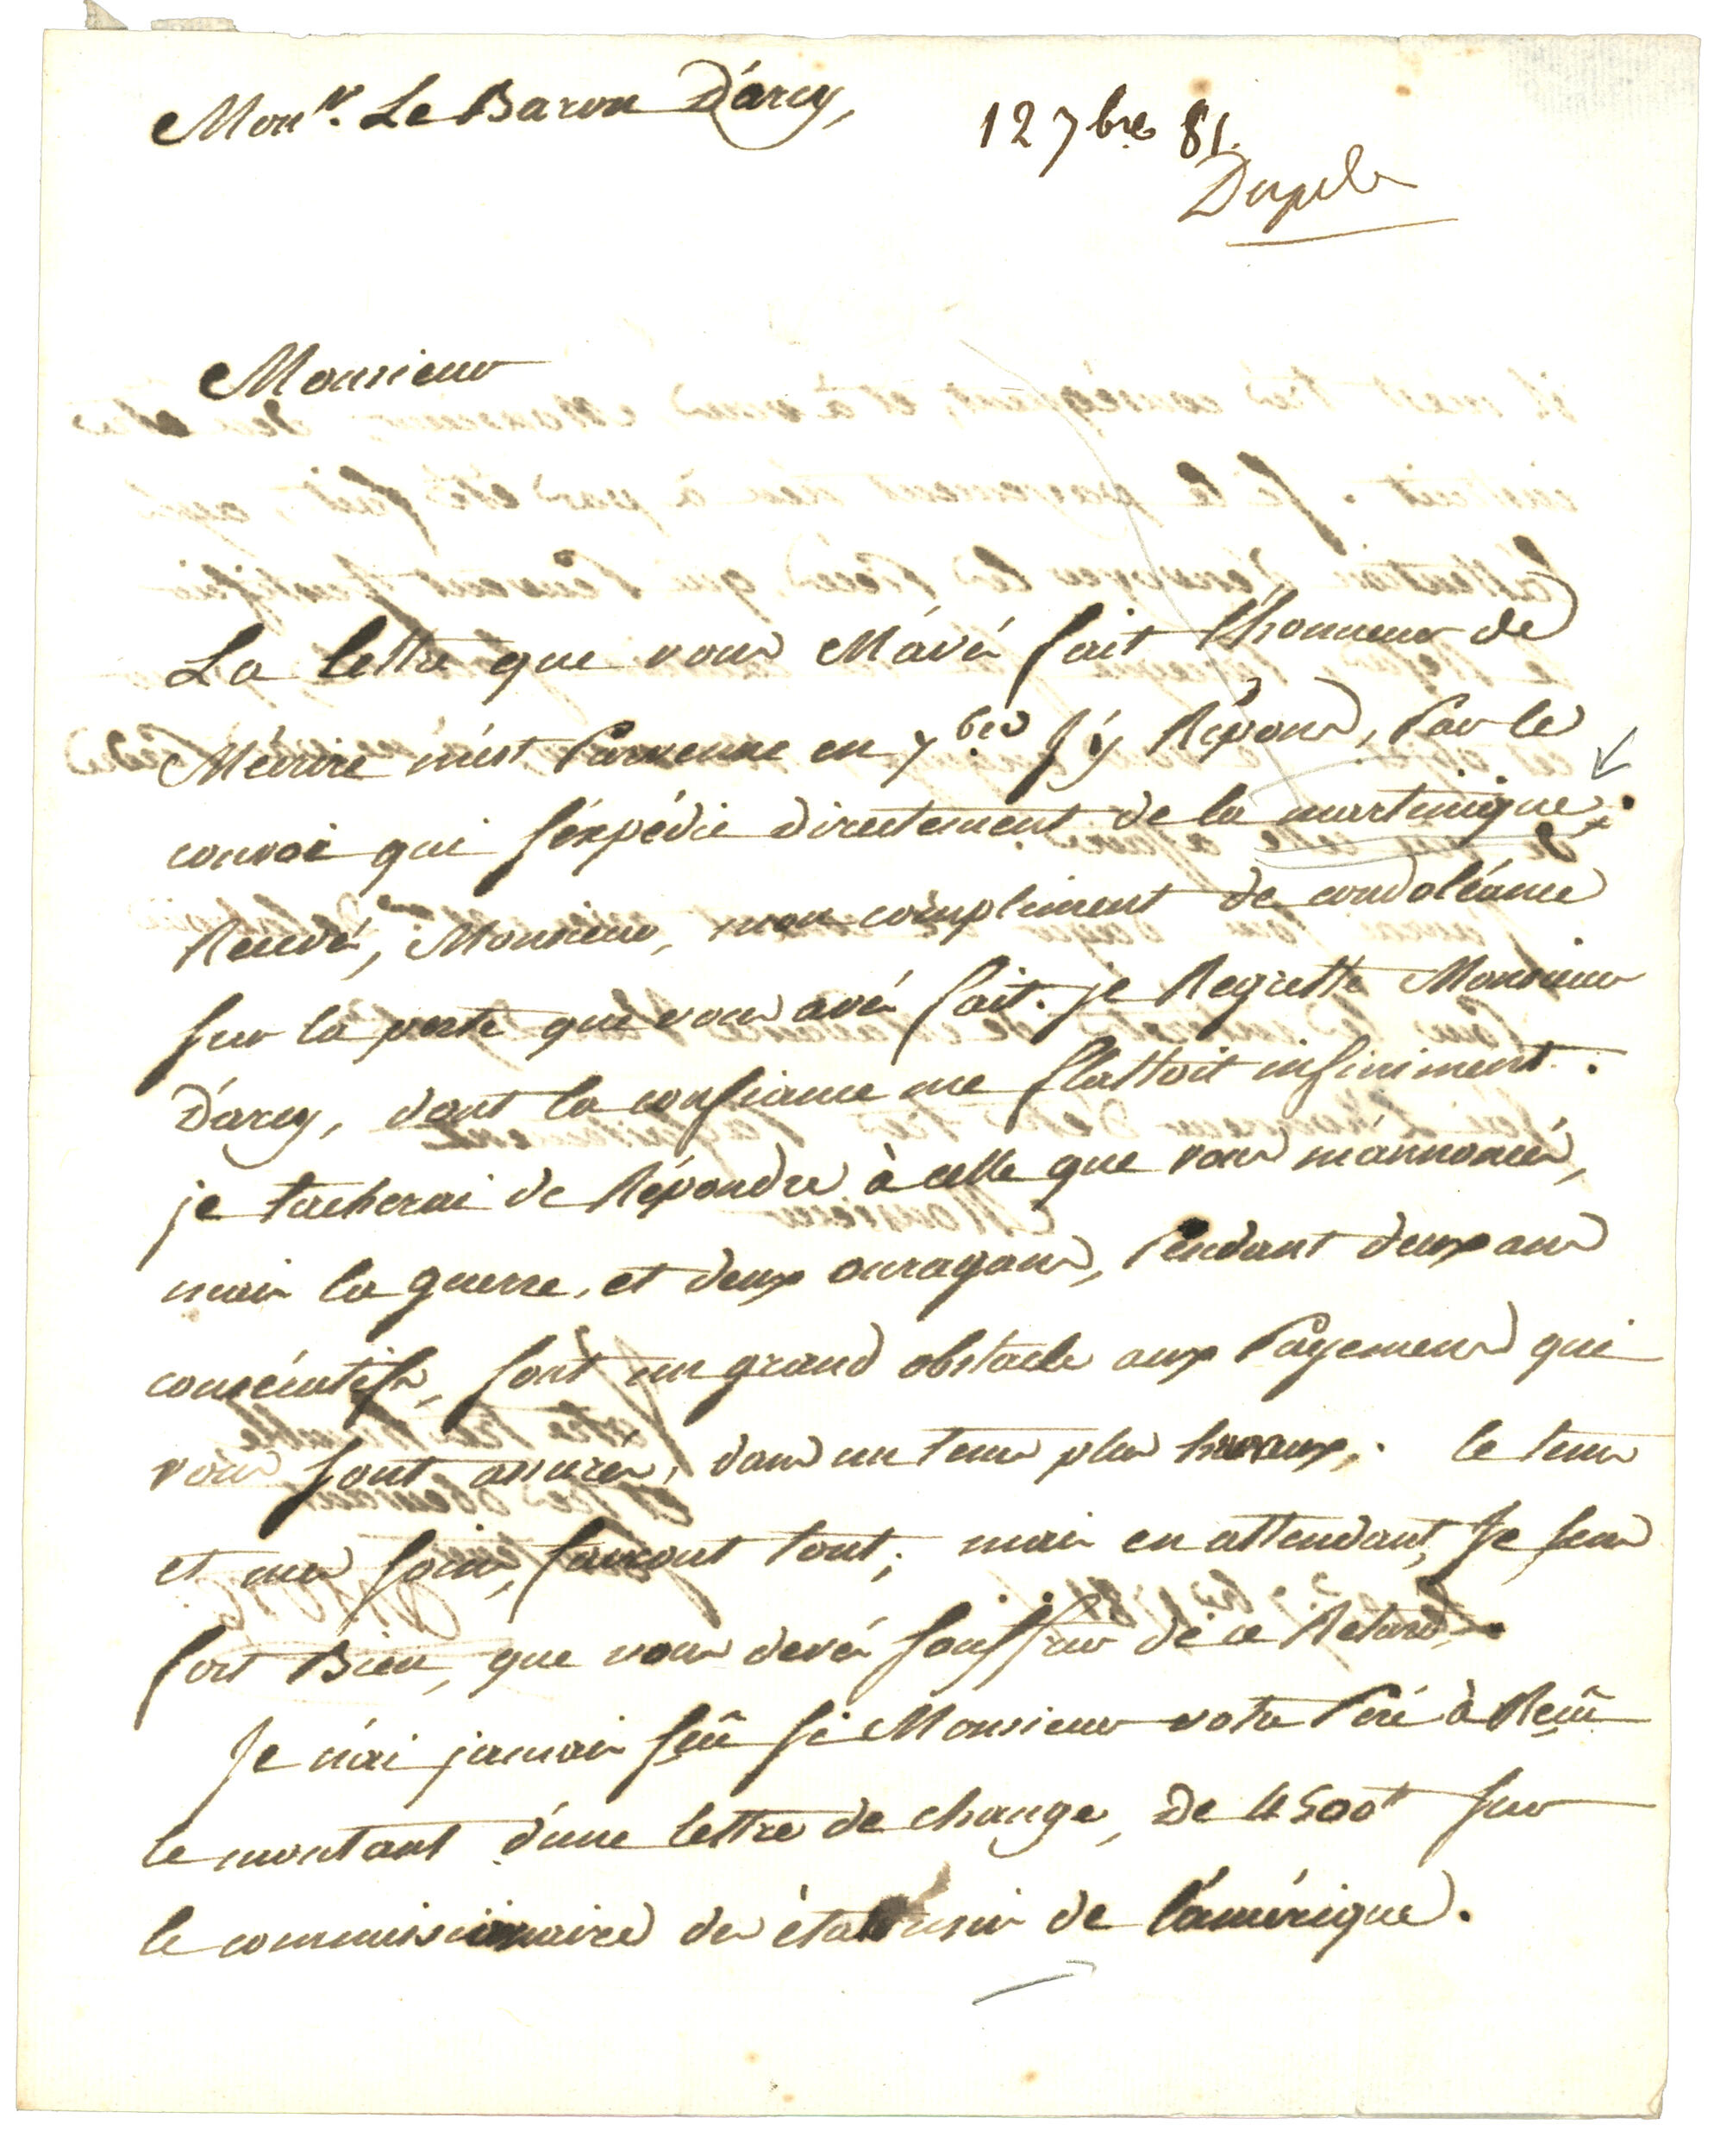 Monr. Le Baron D'arcy,
12 7bre 81.
Dupla
Monsieur
La lettre que vous M'avés fait l'honneur de
M'écrire m'est Parvenue en 7bre J'y Répons, Par le
convoi qui s'éxpédie directement de la martinique.
Recevés, Monsieur, mon compliment de condoléance
sur la perte que vous avés fait. je Regrette Monsieur
D'arcy, dont la confiance me flattoit infiniment.
je tacherai de Répondre à celle que vous m'annoncés,
mais la guerre, et deux ouragans, Pendant deux ans
consécutifs, sont un grand obstacle aux Payemens qui
vous sont assurés, dans un tems plus heureux. le tems
et mes soins, fairont tout; mais en attendant, Je sens
fort Bien, que vous devés souffrir de ce Retard.
Je n'ai jamais sçû si Monsieur votre Pere à Reçû
le montant d'une lettre de change, De 4500tt sur
le commissionaire des états unis de l'amérique.